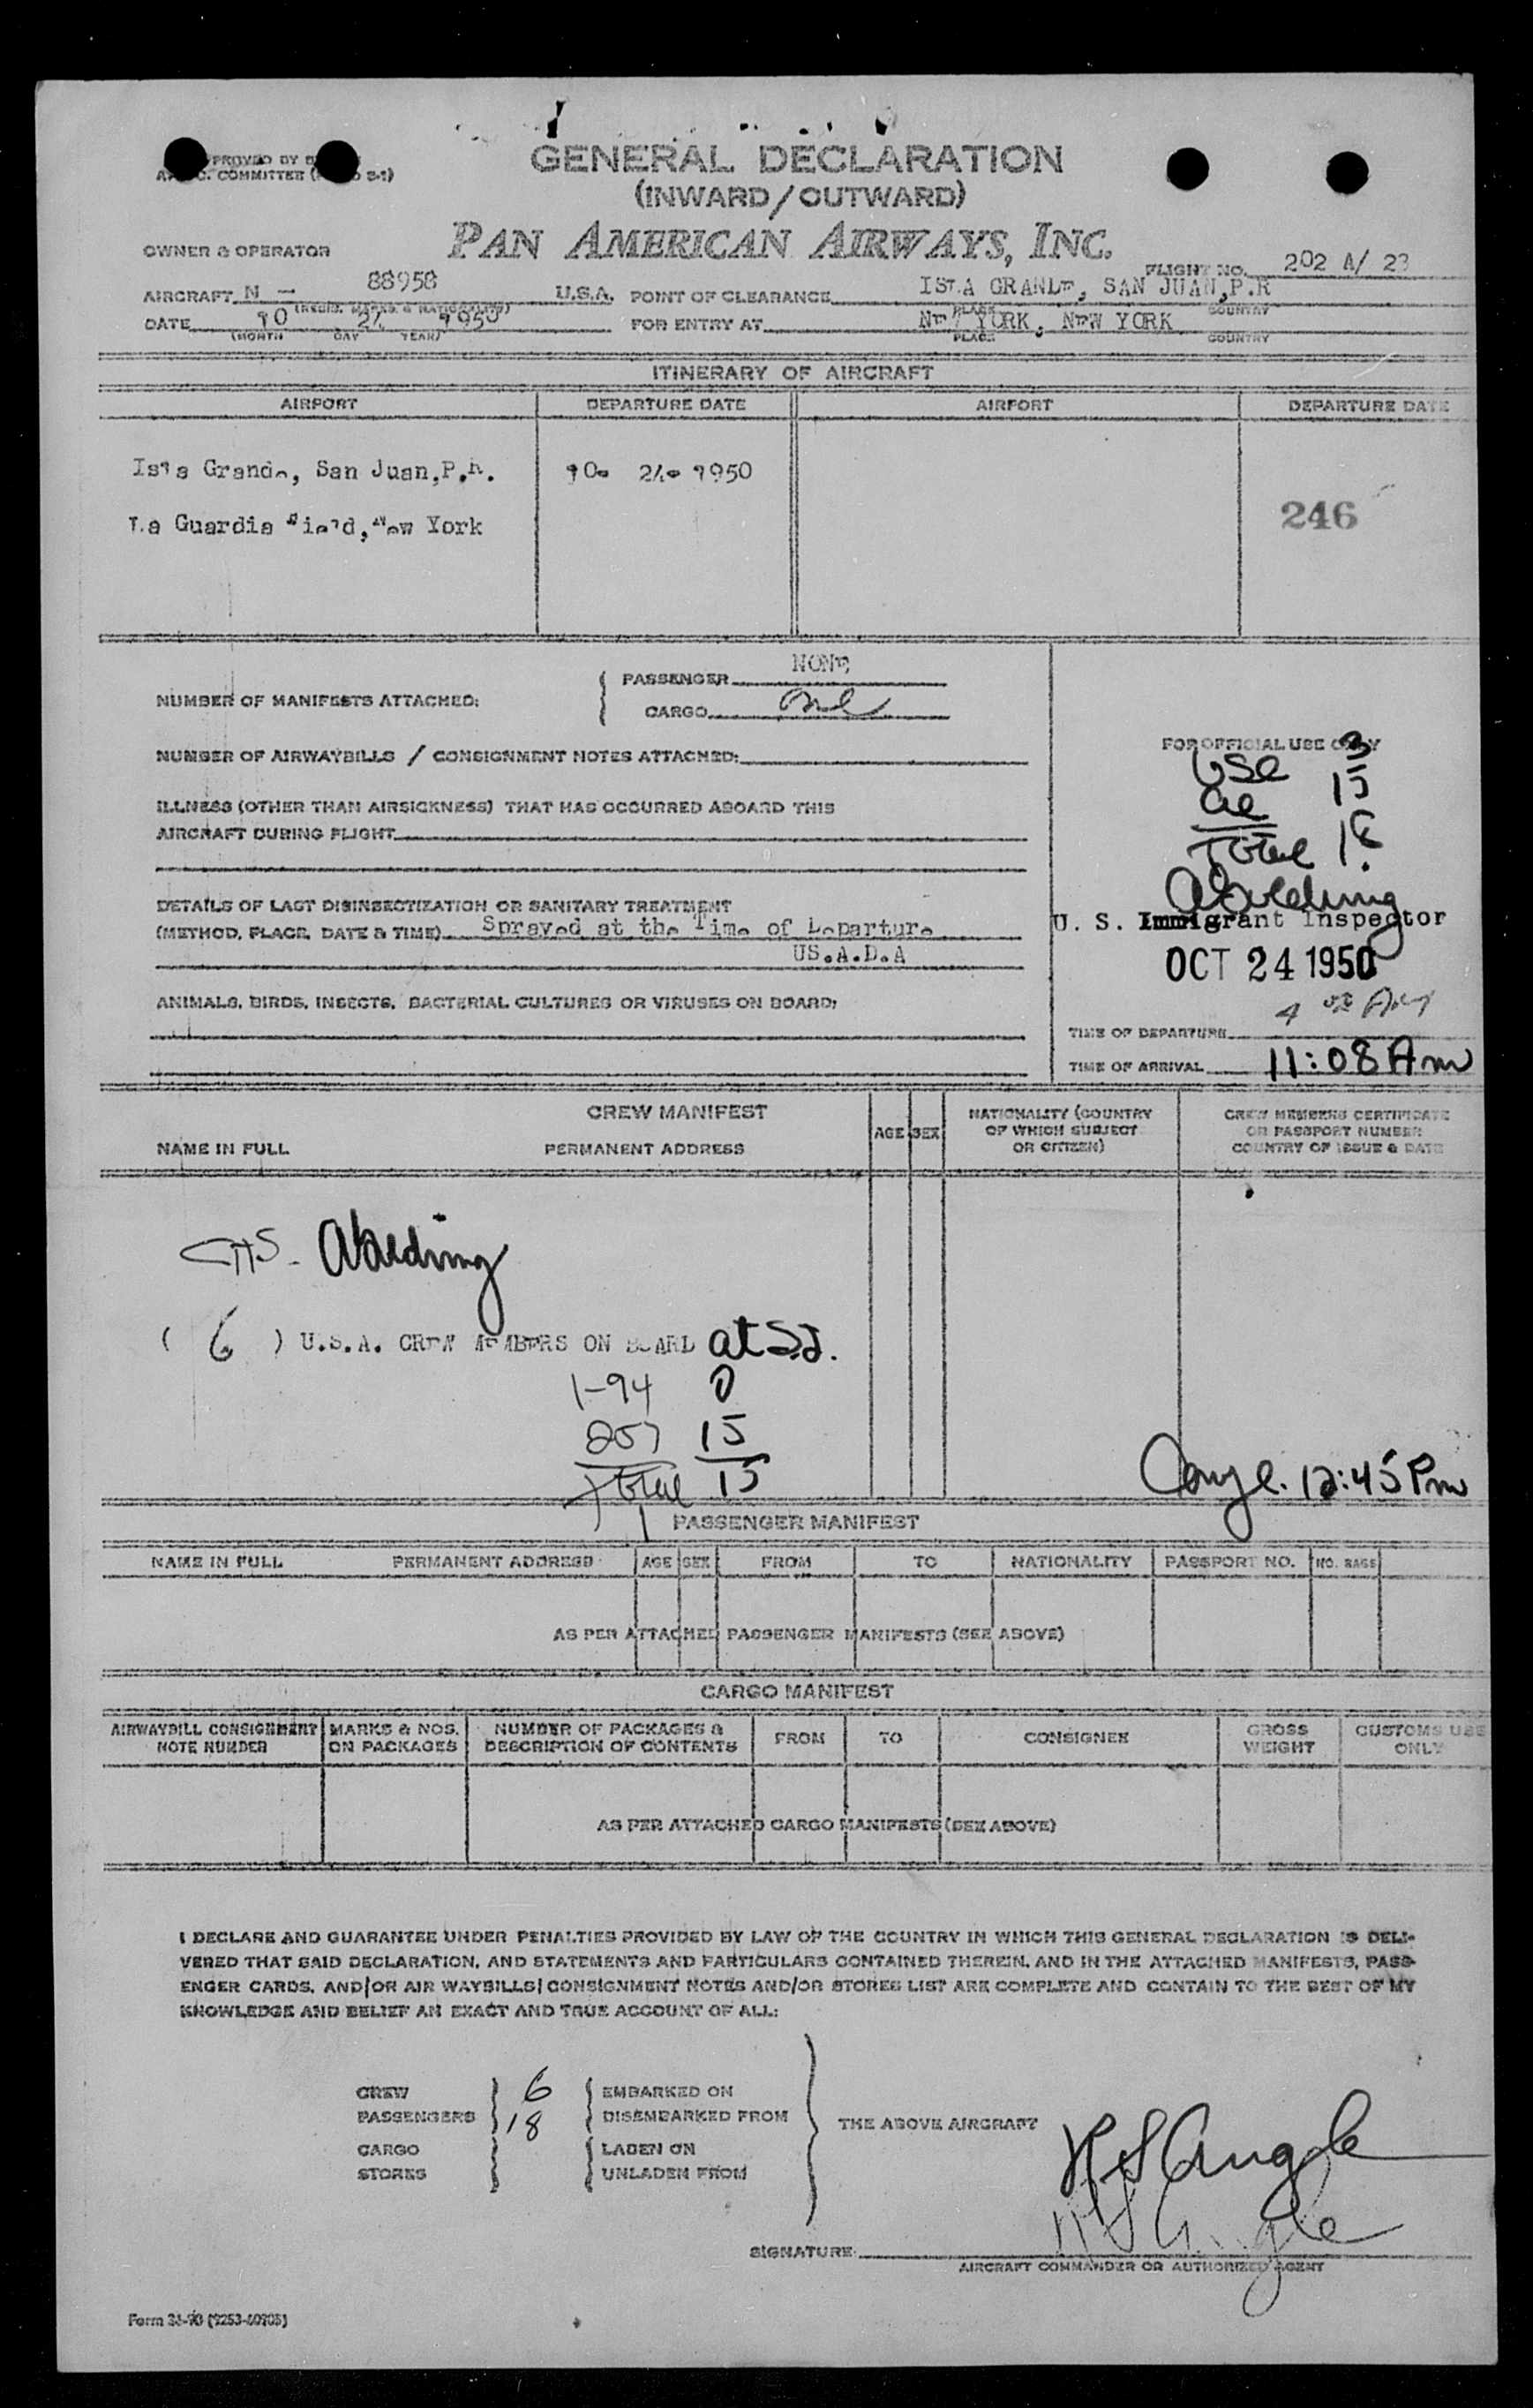 GENERAL DECLARATION
(INWARD/OUTWARD)
PAN AMERICAN AIRWAYS, INC.
PROVED BY
COMMITTEE
OWNER & OPERATOR
FLIGHT NO. 202 A/ 23
AIRCRAFT N - 88958 U.S.A. POINT OF CLEARANCE ISLA GRANDE, SAN JUAN, P.R
(REGIS. MARKS & NATIONALITY) PLACE COUNTRY
DATE 10 24 1950 FOR ENTRY AT NEW YORK, NEW YORK
(MONTH DAY YEAR) PLACE COUNTRY
ITINERARY OF AIRCRAFT
AIRPORT DEPARTURE DATE AIRPORT DEPARTURE DATE
Isla Grande, San Juan, P.R. 10- 24- 1950
246
La Guardia Field, New York
NUMBER OF MANIFESTS ATTACHED: PASSENGER NONE
CARGO one
FOR OFFICIAL USE ONLY
NUMBER OF AIRWAYBILLS / CONSIGNMENT NOTES ATTACHED:
USC 3
ae 15
Total 18
ILLNESS (OTHER THAN AIRSICKNESS) THAT HAS OCCURRED ABOARD THIS
AIRCRAFT DURING FLIGHT
DETAILS OF LAST DISINSECTIZATION OR SANITARY TREATMENT
(METHOD, PLACE, DATE & TIME) Sprayed at the Time of Departure
US.A.D.A
U. S. Immigrant Inspector
OCT 24 1950
ANIMALS, BIRDS, INSECTS, BACTERIAL CULTURES OR VIRUSES ON BOARD:
TIME OF DEPARTURE
TIME OF ARRIVAL 11:08 Am
CREW MANIFEST
NAME IN FULL PERMANENT ADDRESS AGE SEX NATIONALITY (COUNTRY OF WHICH SUBJECT OR CITIZEN) CREW MEMBERS CERTIFICATE OR PASSPORT NUMBER COUNTRY OF ISSUE & DATE
( 6 ) U.S.A. CREW MEMBERS ON BOARD at SJ.
1-94 0
257 15
Total 15
12:45 Pm
PASSENGER MANIFEST
NAME IN FULL PERMANENT ADDRESS AGE SEX FROM TO NATIONALITY PASSPORT NO. NO. BAGS
AS PER ATTACHED PASSENGER MANIFESTS (SEE ABOVE)
CARGO MANIFEST
AIRWAYBILL CONSIGNMENT NOTE NUMBER MARKS & NOS. ON PACKAGES NUMBER OF PACKAGES & DESCRIPTION OF CONTENTS FROM TO CONSIGNEE GROSS WEIGHT CUSTOMS USE ONLY
AS PER ATTACHED CARGO MANIFESTS (SEE ABOVE)
I DECLARE AND GUARANTEE UNDER PENALTIES PROVIDED BY LAW OF THE COUNTRY IN WHICH THIS GENERAL DECLARATION IS DELI-
VERED THAT SAID DECLARATION, AND STATEMENTS AND PARTICULARS CONTAINED THEREIN, AND IN THE ATTACHED MANIFESTS, PASS-
ENGER CARDS, AND/OR AIR WAYBILLS/CONSIGNMENT NOTES AND/OR STORES LIST ARE COMPLETE AND CONTAIN TO THE BEST OF MY
KNOWLEDGE AND BELIEF AN EXACT AND TRUE ACCOUNT OF ALL:
CREW 6 EMBARKED ON
PASSENGERS 18 DISEMBARKED FROM THE ABOVE AIRCRAFT
CARGO LADEN ON
STORES UNLADEN FROM
SIGNATURE
AIRCRAFT COMMANDER OR AUTHORIZED AGENT